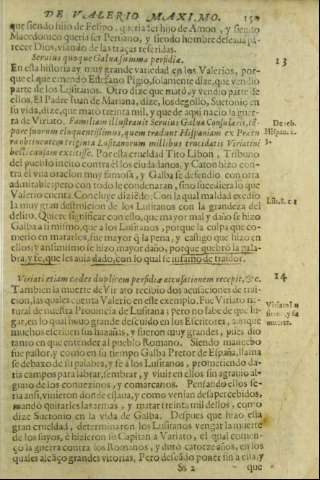 DE VALERIO MAXIMO. 150
que siendo hijo de Felipo, queria ser hijo de Amon, y siendo
Macedonico queria ser Persiano, y siendo hombre desseaua pa-
recer Dios, vsando de las traças referidas.
Seruius quoque Galba summa perfidiæ. 13
En esta historia ay muy grande variedad en los Valerios, por-
que el que enmendo Estefano Pigio, solamente dize, que vendio
parte de los Lusitanos. Otro dize que mató, y vendio parte de
ellos. El Padre Iuan de Mariana, dize, los degollo, Suetonio en
su vida, dize, que mató treinta mil, y que de aqui nacio la guer-
ra de Viriato. Familiam illustrauit Seruius Galba Consularis, tē
pore suorum eloquentissimus, quem tradunt Hispaniam ex Præ
ra obtinentem triginta Lusitanorum millibus trucidatis Viriatini
belli causam extitisse. Por esta crueldad Tito Libon, Tribuno
del pueblo incito contra él los ciudadanos, y Caton hizo con-
tra el vida oracion muy famosa, y Galba se defendio con otra
admirable; pero con todo le condenaran, sino sucediera lo que
Valerio cuenta. Concluye diziēdo; Con la qual maldad excedio
la muy gran destruicion de los Lusitanos con la grandeza del
delito. Quiere significar con ello, que mayor mal y daño se hizo
Galba a si mismo, que a los Lusitanos, porque la culpa que co-
metio en matarlos, fue mayor q̃ la pena, y castigo que hizo en
ellos; y assimismo se hizo mayor daño, porque quebrò la pala-
bra, y fe, que les auia dado, con lo qual se infamo de traidor.
Viriati etiam cædes duplicem perfidiæ accusationem recepit, &c. 14
Tambien la muerte de Viriato recibio dos acusaciones de trai-
cion, las quales cuenta Valerio en este exemplo. Fue Viriato na-
tural de nuestra Prouincia de Lusitania; pero no sabe de que lu-
gar, en lo qual huuo grande descuido en los Escritores, aunque
muchos escriuen sus hazañas, y fueron muy grandes, pues dio
tanto en que entender al pueblo Romano. Siendo mancebo
fue pastor, y como en su tiempo Galba Pretor de España, llama
se debaxo de su palabra, y fe a los Lusitanos, prometiendo dar-
tes campos para labrar, sembrar, y viuir en ellos sin agrauio al-
guno de los conuezinos, y comarcanos. Pensando ellos se-
ria ansi, vinieron donde estaua, y como venian desapercebidos,
mando quitarles las armas, y matar treinta mil dellos, como
dize Suetonio en la vida de Galba. Despues que hizo esta
gran crueldad, determinaron los Lusitanos vengar la muerte
de los suyos, è hizieron su Capitan a Variato, el qual comen-
ço la guerra contra los Romanos, y duró catorze años, en los
quales alcāço grandes vitorias. Pero desseādo poner fin a ella, y
Ss 2 que